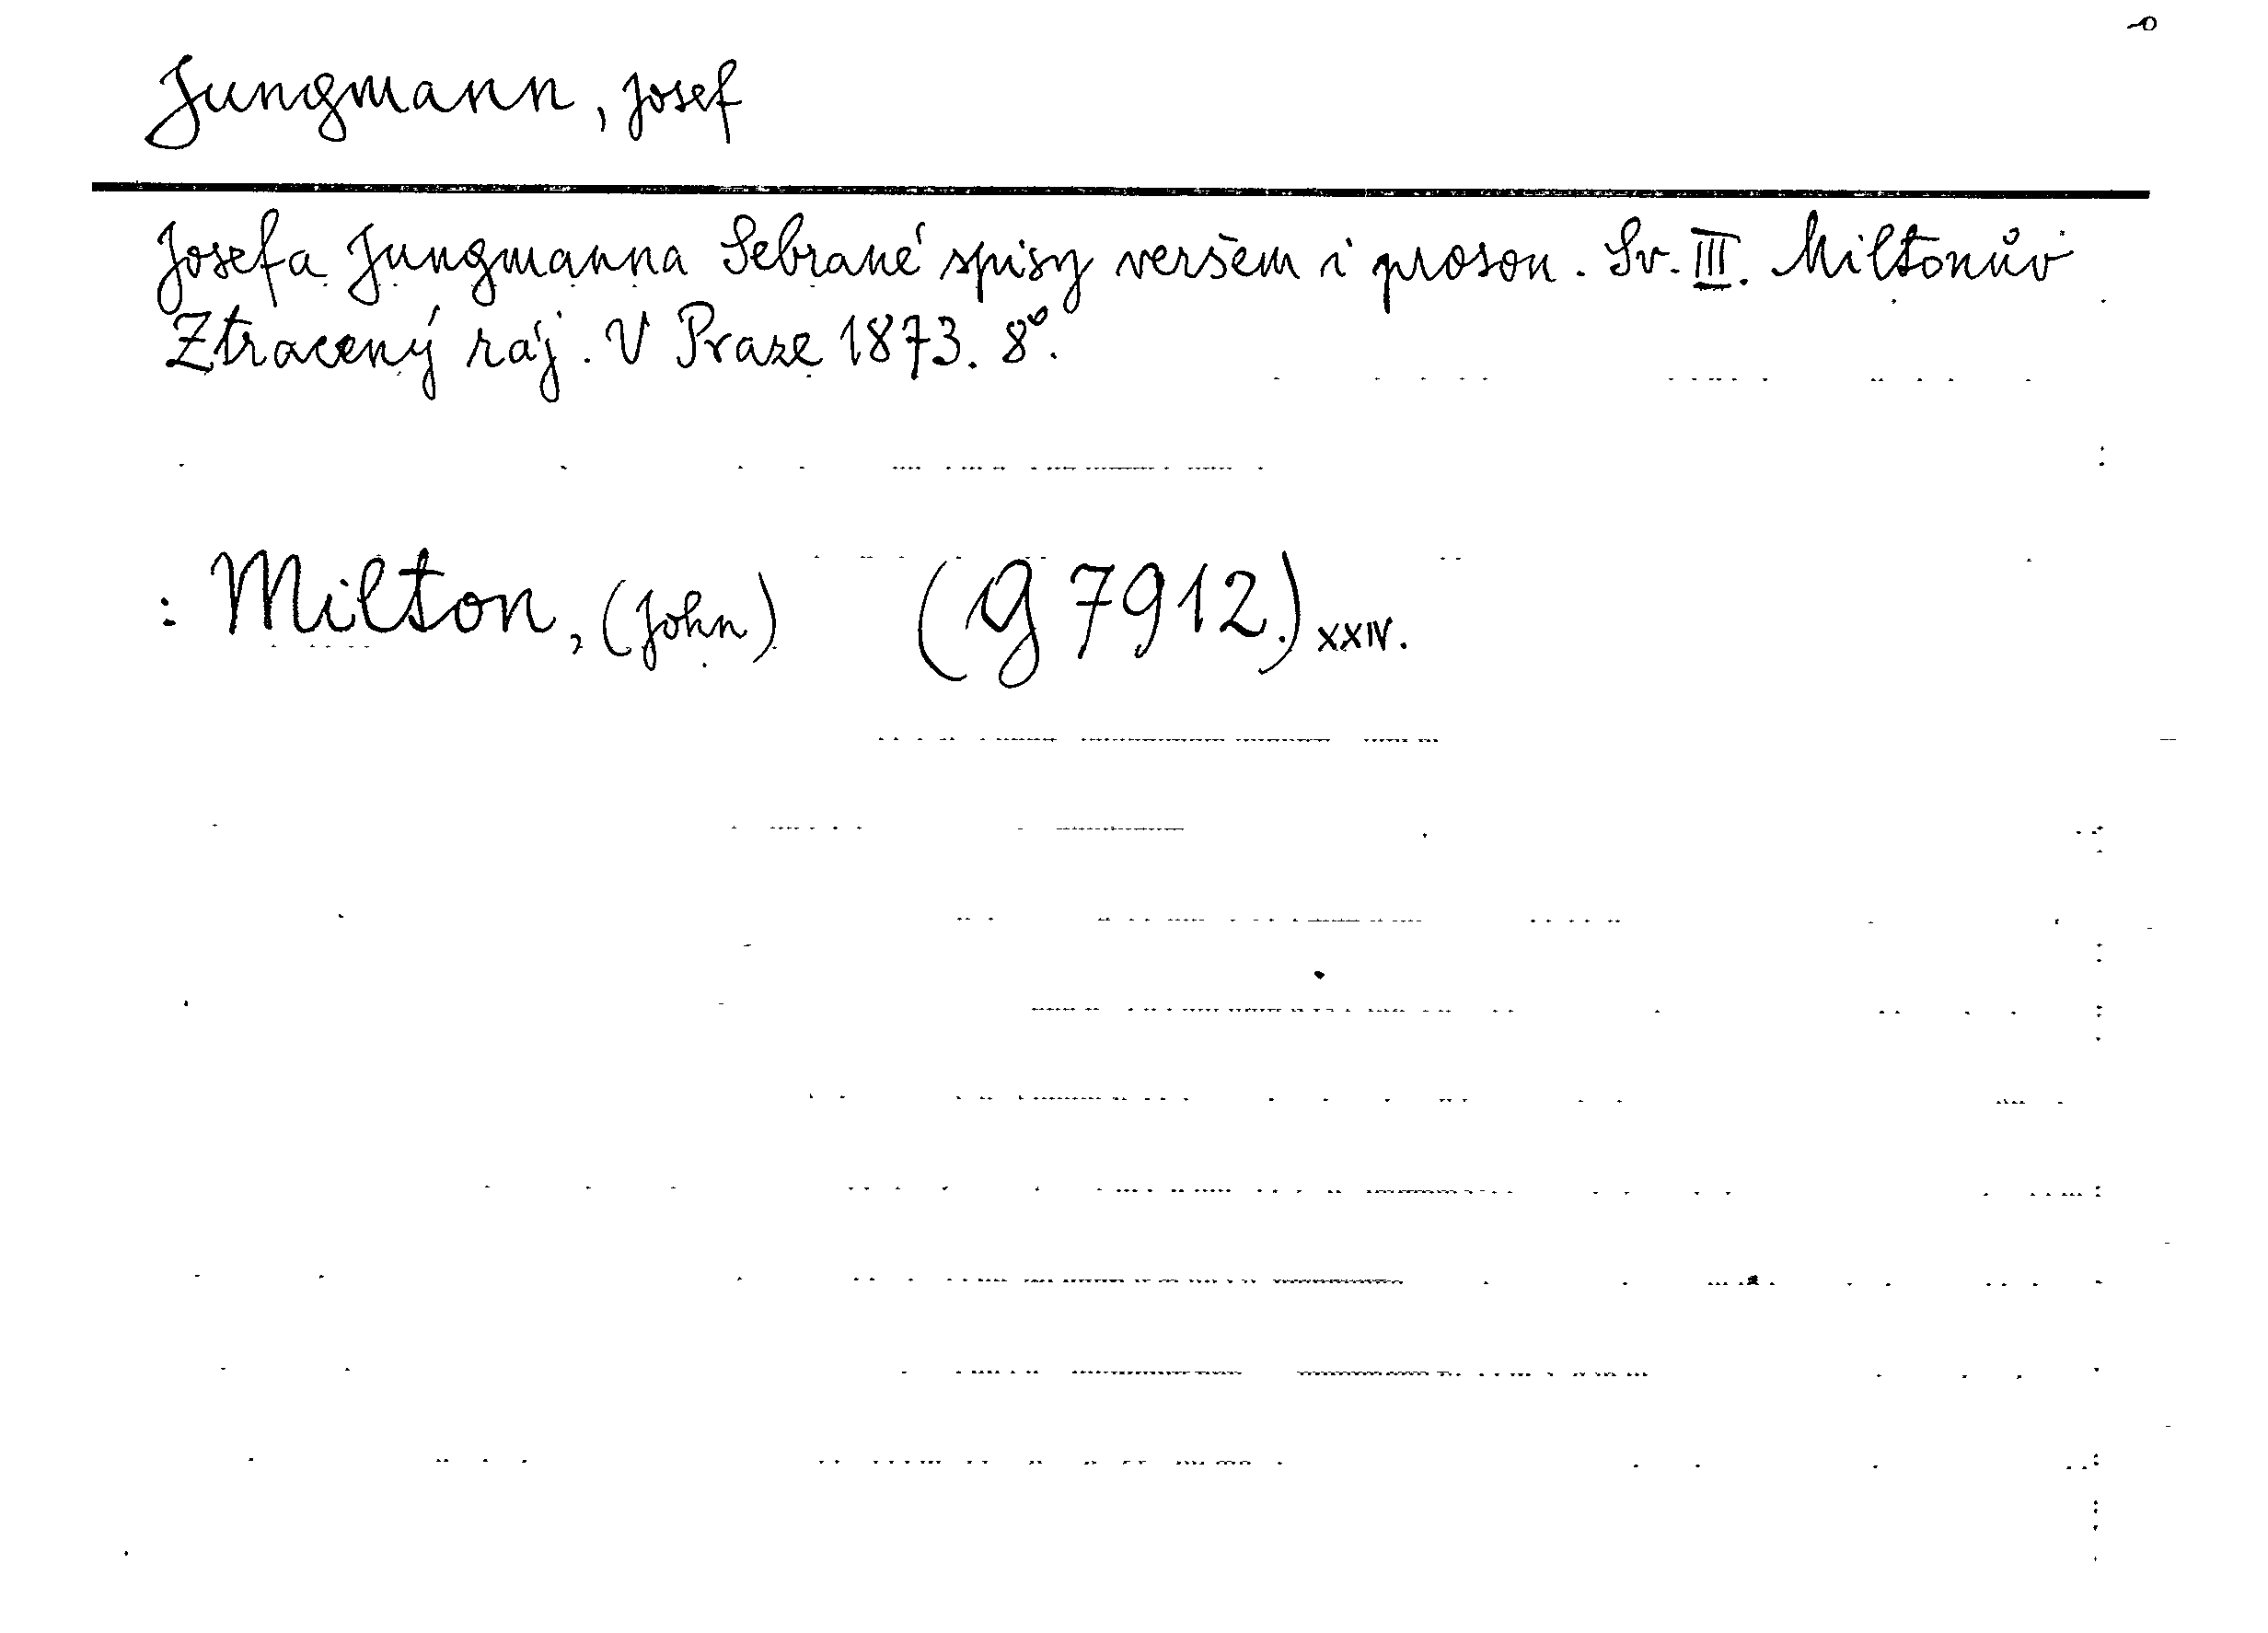 Jungmann, Josef
Josefa Jungmanna Sebrané spisy veršem i prosou. Sv. III. Miltonův
Ztracený ráj. V Praze 1873. 8°.
: Milton, (John) (G 7912.) XXIV.